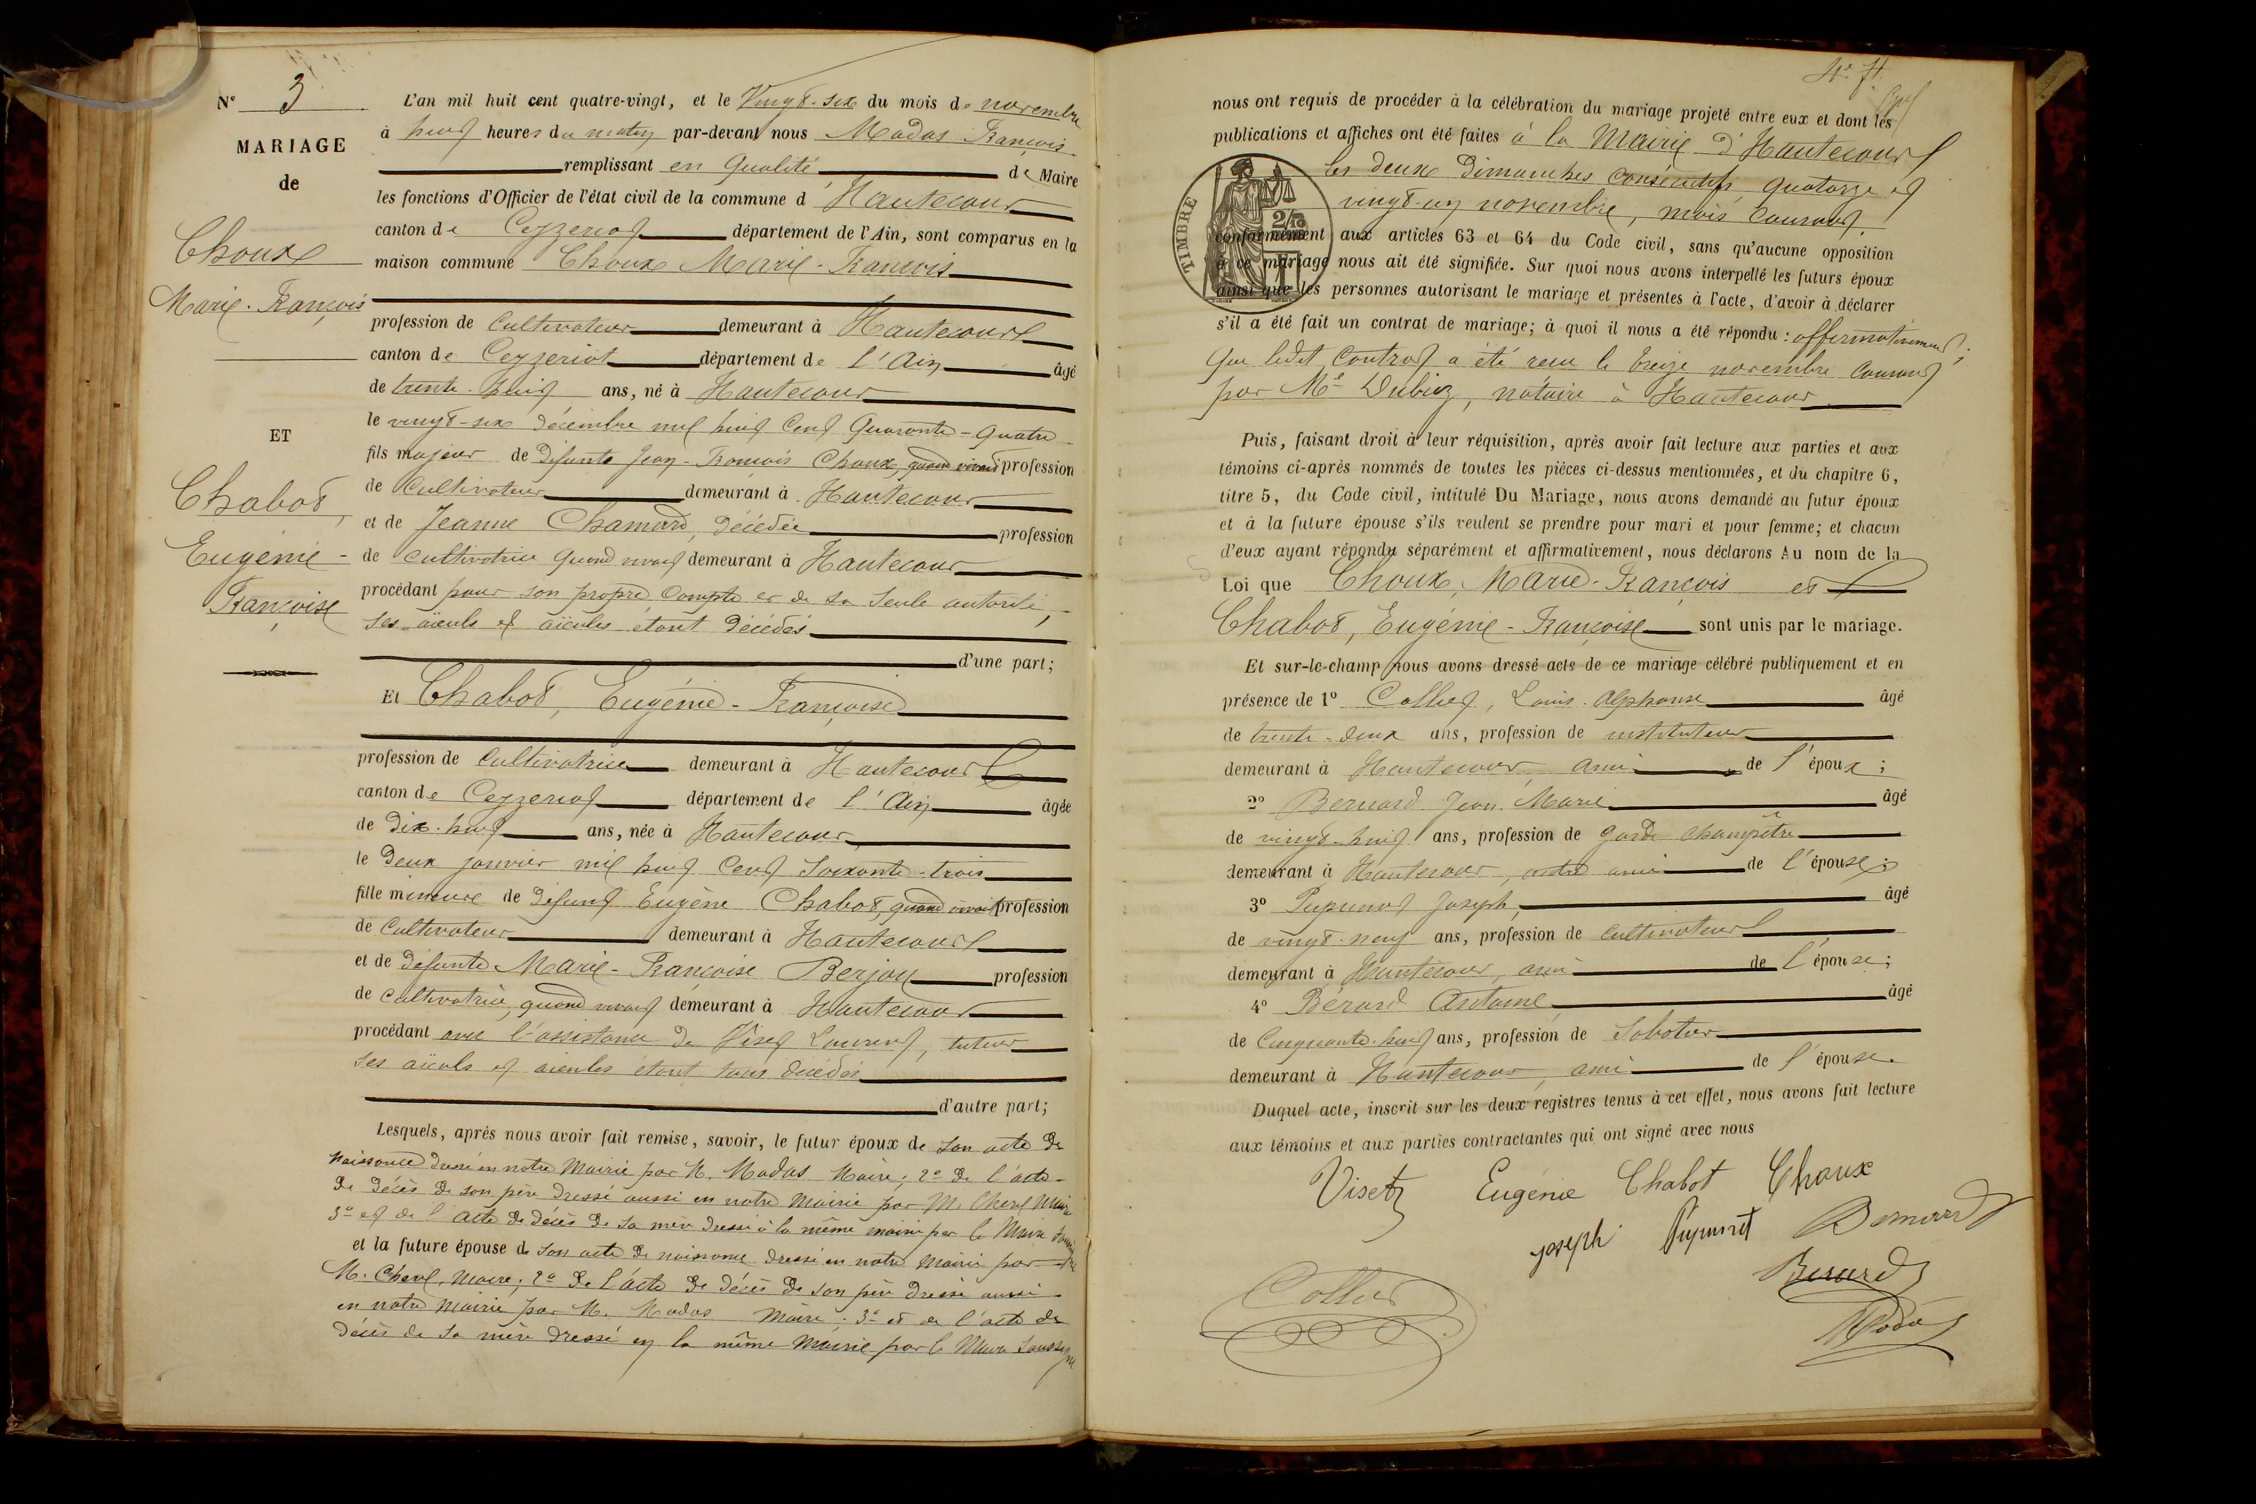 N° 3
MARIAGE
de
Choux
Marie-François
ET
Chabot,
Eugénie-
Françoise
L'an mil huit cent quatre-vingt, et le Vingt-six du mois de novembre
à huit heures du matin par-devant nous Modas François
remplissant en qualité de Maire
les fonctions d'Officier de l'état civil de la commune d'Hautecour
canton de Ceyzeriat département de l'Ain, sont comparus en la
maison commune Choux Marie-François
profession de Cultivateur demeurant à Hautecour
canton de Ceyzeriat département de l'Ain âgé
de trente-huit ans, né à Hautecour
le vingt-six décembre mil huit cent quarante-quatre
fils majeur de défunts Jean-François Choux, quand vivait profession
de Cultivateur demeurant à Hautecour
et de Jeanne Chamard, décédée profession
de cultivatrice quand vivait demeurant à Hautecour
procédant pour son propre compte et de sa seule autorité,
ses aïeuls et aïeules étant décédés
d'une part;
Et Chabot, Eugénie-Françoise
profession de Cultivatrice demeurant à Hautecour
canton de Ceyzeriat département de l'Ain âgée
de dix-huit ans, née à Hautecour
le deux janvier mil huit cent soixante-trois
fille mineure de défunt Eugène Chabot, quand vivait profession
de Cultivateur demeurant à Hautecour
et de défunte Marie-Françoise Berjou profession
de Cultivatrice, quand vivait demeurant à Hautecour
procédant avec l'assistance de Viset Laurent, tuteur
ses aïeuls et aïeules étant tous décédés
d'autre part;
Lesquels, après nous avoir fait remise, savoir, le futur époux de son acte de
naissance dressé en notre Mairie par M. Modas Maire; 2° de l'acte
de décès de son père dressé aussi en notre Mairie par M. Chevl Maire
3° et de l'acte de décès de sa mère dressé à la même mairie par le Maire
et la future épouse de son acte de naissance dressé en notre Mairie par
M. Chevl, Maire; 2° de l'acte de décès de son père dressé aussi
en notre Mairie par M. Modas Maire; 3° et de l'acte de
décès de sa mère dressé en la même Mairie par le Maire soussigné
nous ont requis de procéder à la célébration du mariage projeté entre eux et dont les
publications et affiches ont été faites à la Mairie d'Hautecour
les deux Dimanches consécutifs, quatorze et
vingt-un novembre, mois courant.
TIMBRE
conformément aux articles 63 et 64 du Code civil, sans qu'aucune opposition
à ce mariage nous ait été signifiée. Sur quoi nous avons interpellé les futurs époux
ainsi que les personnes autorisant le mariage et présentes à l'acte, d'avoir à déclarer
s'il a été fait un contrat de mariage; à quoi il nous a été répondu: affirmativement;
que ledit Contrat a été reçu le treize novembre courant
par Me Dubiez, notaire à Hautecour
Puis, faisant droit à leur réquisition, après avoir fait lecture aux parties et aux
témoins ci-après nommés de toutes les pièces ci-dessus mentionnées, et du chapitre 6,
titre 5, du Code civil, intitulé Du Mariage, nous avons demandé au futur époux
et à la future épouse s'ils veulent se prendre pour mari et pour femme; et chacun
d'eux ayant répondu séparément et affirmativement, nous déclarons Au nom de la
Loi que Choux, Marie-François et
Chabot, Eugénie-Françoise sont unis par le mariage.
Et sur-le-champ nous avons dressé acte de ce mariage célébré publiquement et en
présence de 1° Collet, Louis-Alphonse âgé
de trente-deux ans, profession de instituteur
demeurant à Hautecour, ami de l'époux;
2° Bernard Jean-Marie âgé
de vingt-huit ans, profession de garde champêtre
demeurant à Hautecour, ami de l'épouse;
3° Pupunat Joseph, âgé
de vingt-neuf ans, profession de cultivateur
demeurant à Hautecour, ami de l'épouse;
4° Bérard Antoine âgé
de Cinquante-huit ans, profession de Sabotier
demeurant à Hautecour, ami de l'épouse.
Duquel acte, inscrit sur les deux registres tenus à cet effet, nous avons fait lecture
aux témoins et aux parties contractantes qui ont signé avec nous
Viset Eugénie Chabot Choux
joseph Pupunat Bernard
Berard
Collet
Modas